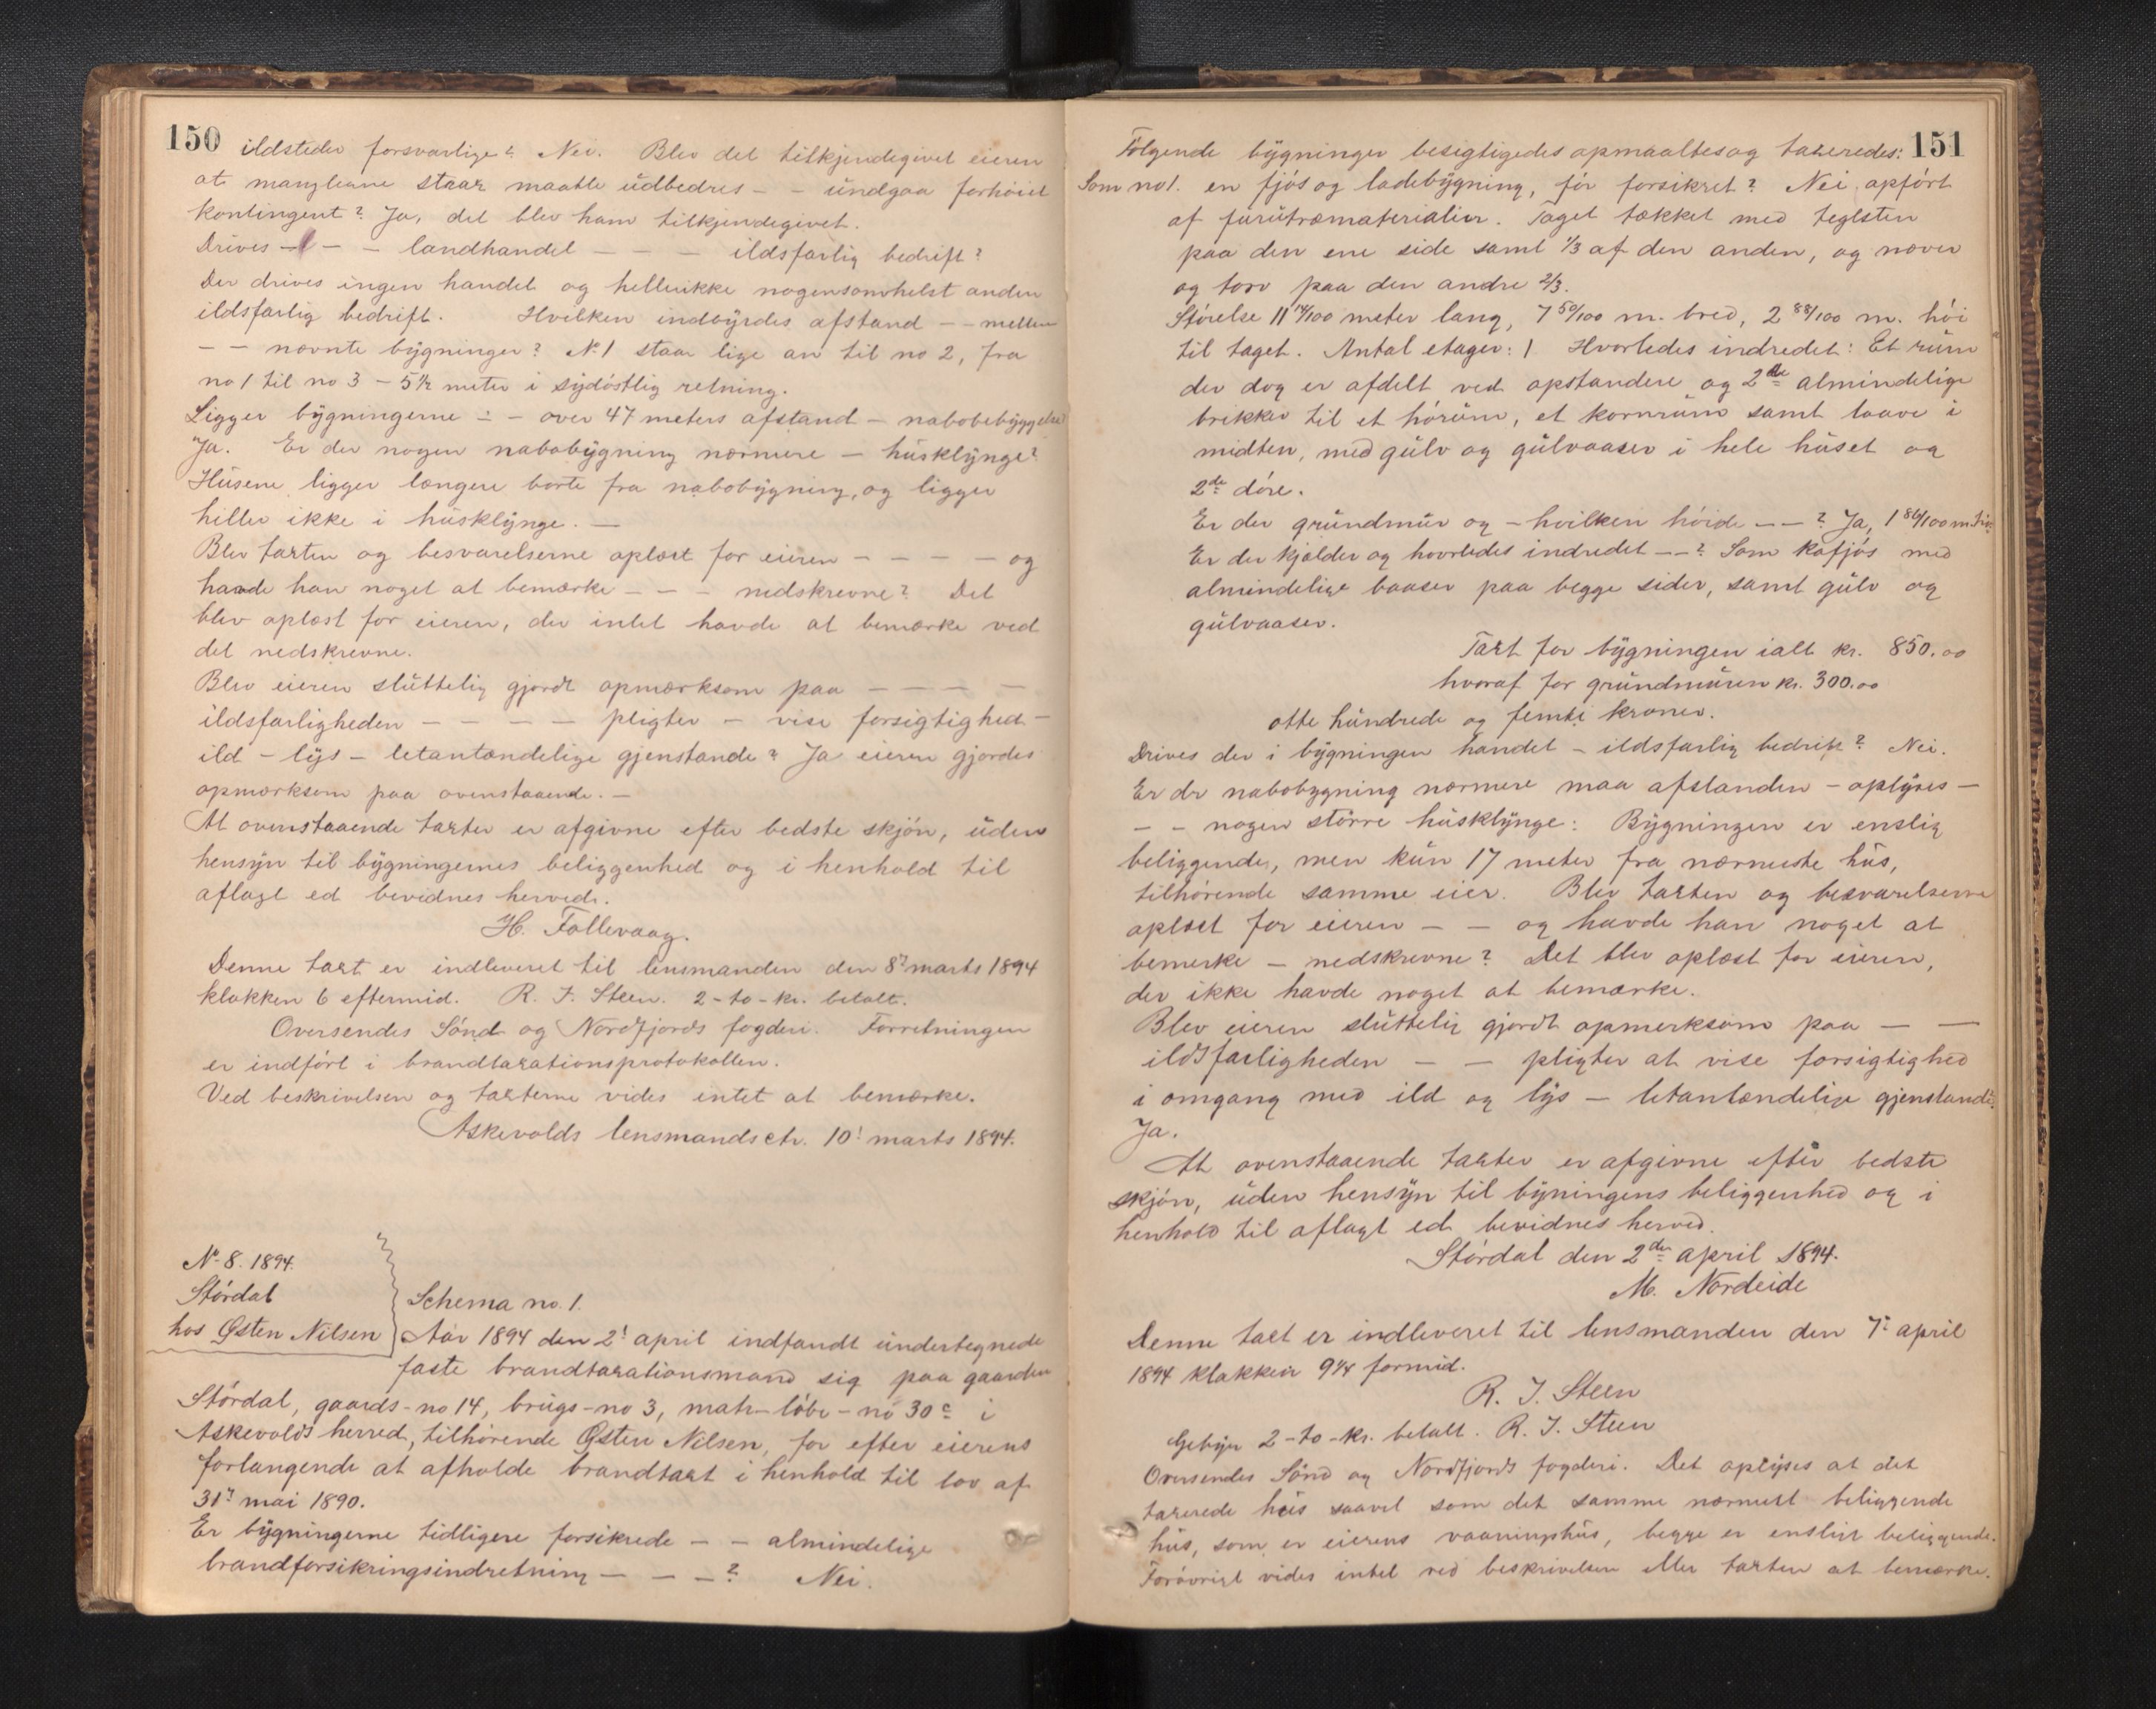 150
ildsteder forsvarlige? Nei. Blev det tilkjendegivet eieren
at manglerne staar maatte udbedres - - undgaa forhøiet
kontingent? Ja, det blev ham tilkjendegivet.
Drives - - - landhandel - - - ildsfarlig bedrift?
Der drives ingen handel og hellerikke nogensomhelst anden
ildsfarlig bedrift. Hvilken indbyrdes afstand - - mellem
- - nævnte bygninger? No 1 staar lige an til no 2, fra
no 1 til no 3 - 5½ meter i sydøstlig retning.
Ligger bygningerne - - over 47 meters afstand - nabobebyggelse
Ja. Er der nogen nabobygning nærmere - husklynge?
Husene ligger længere borte fra nabobygning, og ligger
heller ikke i husklynge. -
Blev taxten og besvarelserne oplæst for eieren - - - - og
havde han noget at bemærke - - - nedskrevne? Det
blev oplæst for eieren, der intet havde at bemærke ved
det nedskrevne.
Blev eieren sluttelig gjordt opmærksom paa - - - -
ildsfarligheden - - - - pligter - vise forsigtighed -
ild - lys - letantændelige gjenstande? Ja eieren gjordes
opmærksom paa ovenstaaende. -
At ovenstaaende taxter er afgivne efter bedste skjøn, uden
hensyn til bygningernes beliggenhed og i henhold til
aflagt ed bevidnes herved.
H. Follevaag.
Denne taxt er indleveret til lensmanden den 8? marts 1894
klokken 6 eftermid. R. J. Steen. 2-to-kr. betalt.
Oversendes Sønd og Nordfjords fogderi. Forretningen
er indført i brandtaxationsprotokollen.
Ved beskrivelsen og taxterne vides intet at bemærke.
Askevolds lensmandsctr. 10! marts 1894.
No 8. 1894.
Størdal
hos Østen Nilsen
Schema no. 1.
Aar 1894 den 2! april indfandt undertegnede
faste brandtaxationsmand sig paa gaarden
Størdal, gaards-no 14, brugs-no 3, matr-løbe-no 30c i
Askevolds herred, tilhørende Østen Nilsen, for efter eierens
forlangende at afholde brandtaxt i henhold til lov af
31? mai 1890.
Er bygningerne tidligere forsikrede - - almindelige
brandforsikringsindretning - - - ? Nei.
151
Følgende bygninger besigtigedes opmaaltes og taxeredes:
Som no 1. en fjøs og ladebygning, før forsikret? Nei opført
af furutræmaterialier. Taget tækket med teglsten
paa den ene side samt 1/3 af den anden, og næver
og torv paa den andre 2/3.
Størelse 11 14/100 meter lang, 7 50/100 m. bred, 2 88/100 m. høi
til taget. Antal etager: 1 Hvorledes indredet: Et rum
der dog er afdelt ved opstandere og 2de almindelige
brikker til et hørum, et kornrum samt laave i
midten, med gulv og gulvaaser i hele huset og
2de døre.
Er der grundmur og - hvilken høide - - ? Ja, 1 86/100 m. høi
Er der kjælder og hvorledes indredet - - ? Som kofjøs med
almindelige baaser paa begge sider, samt gulv og
gulvaaser.
Taxt for bygningen ialt kr. 850.00
hvoraf for grundmuren kr. 300.00
otte hundrede og femti kroner.
Drives der i bygningen handel - ildsfarlig bedrift? Nei.
Er dr nabobygning nærmere maa afstanden - oplyses -
- - nogen større husklynge: Bygningen er enslig
beliggende, men kun 17 meter fra nærmeste hus,
tilhørende samme eier. Blev taxten og besvarelserne
oplæst for eieren - - og havde han noget at
bemerke - nedskrevne? Det blev oplæst for eieren,
der ikke havde noget at bemærke.
Blev eieren sluttelig gjordt opmerksom paa - -
ildsfarligheden - - pligter at vise forsigtighed
i omgang med ild og lys - letantændelige gjenstande?
Ja.
At ovenstaaende taxter er afgivne efter bedste
skjøn, uden hensyn til byningens beliggenhed og i
henhold til aflagt ed bevidnes herved.
Størdal den 2den april 1894.
M. Nordeide
Denne taxt er indleveret til lensmanden den 7? april
1894 klokken 9¼ formid.
R. J. Steen
Gebyr 2-to-kr. betalt. R. J. Steen
Oversendes Sønd og Nordfjords fogderi. Det oplyses at det
taxerede hus saavel som det samme nærmest beliggende
hus, som er eierens vaaningshus, begge er ensligt beliggende.
Forøvrigt vides intet ved beskrivelsen eller taxten at bemærke.